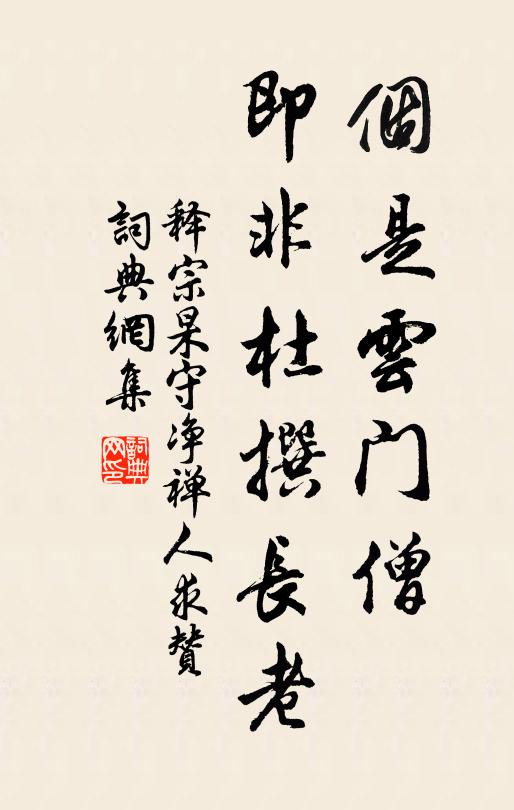 個是雲门僧
即非杜撰長老
释宗杲守净禅人求贊
詞典網集
詞典网印